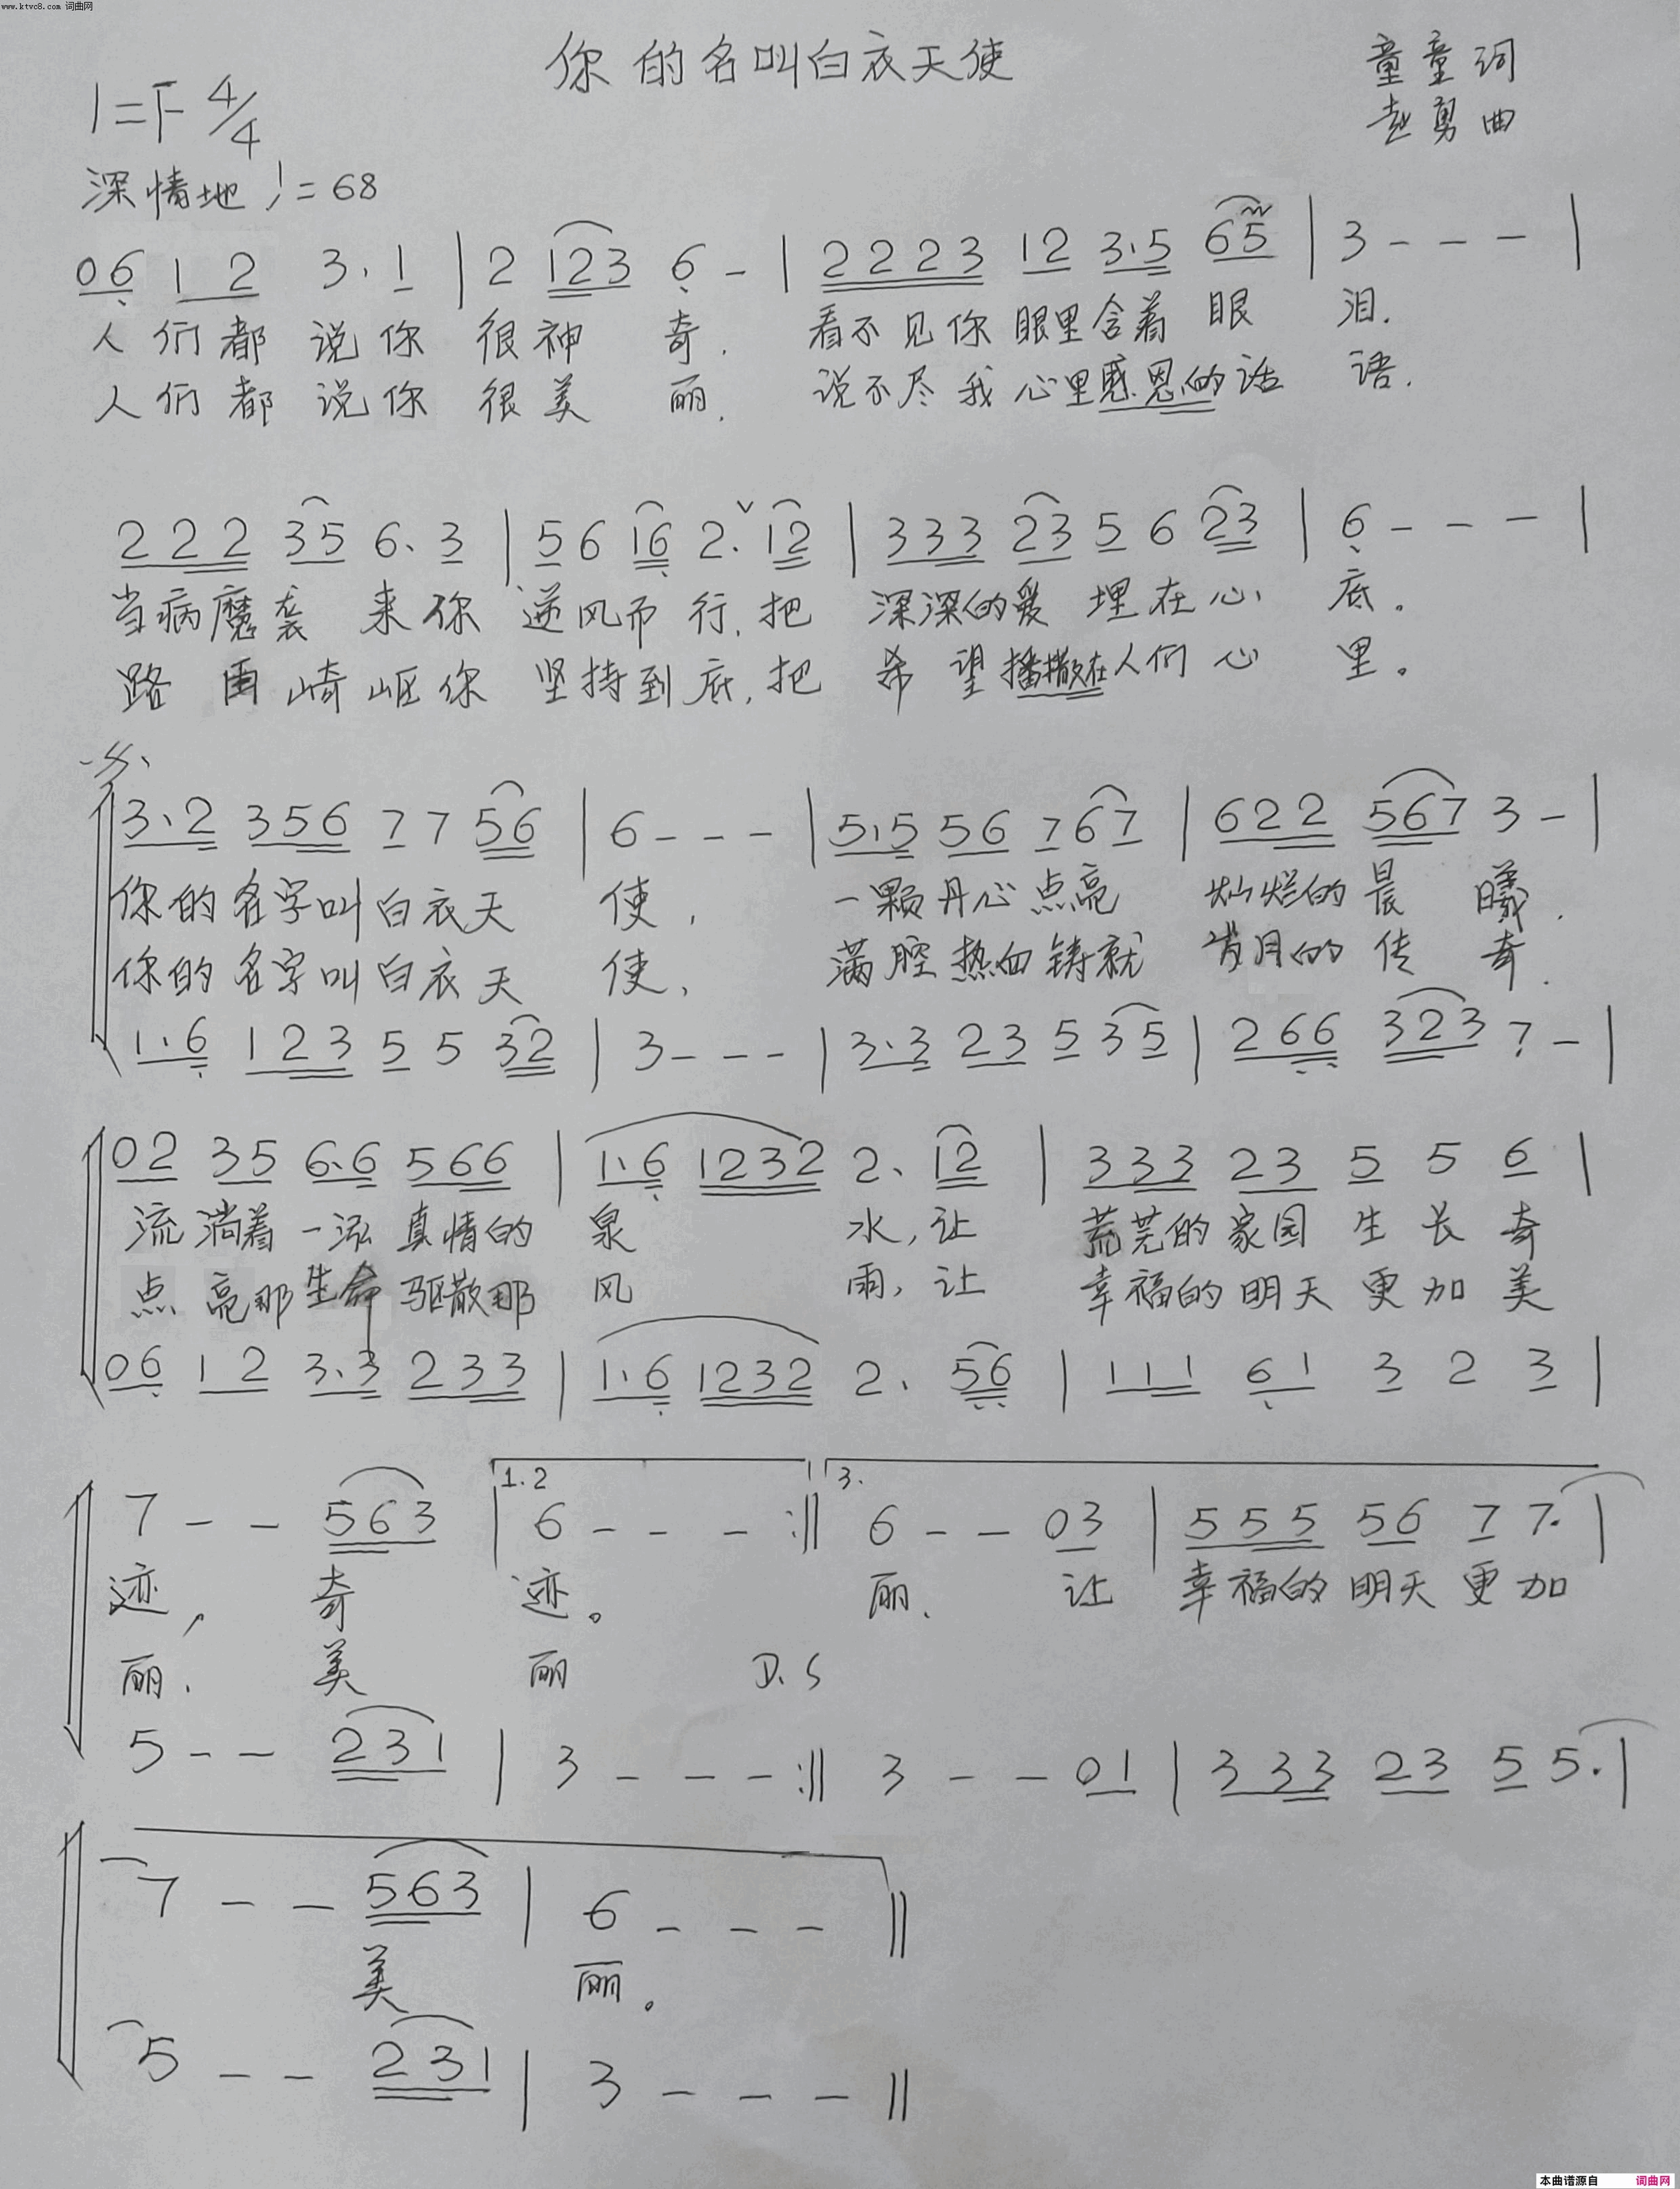 www.ktvc8.com 词曲网
你的名叫白衣天使
童童词
1=F 4/4
赵勇曲
深情地 ♩=68
06 1 2 3. 1 | 2 123 6 - | 2223 12 3.5 65 | 3 - - - |
人们都说你很神奇. 看不见你眼里含着眼泪.
人们都说你很美丽. 说不尽我心里感恩的话语.
222 35 6. 3 | 5 6 16 2. ∨ 12 | 333 23 5 6 23 | 6 - - - |
当病魔袭来你逆风而行,把深深的爱埋在心底.
路再崎岖你坚持到底,把希望播撒在人们心里。
3.2 356 7 7 56 | 6 - - - | 5.5 56 7 6 7 | 622 567 3 - |
你的名字叫白衣天使, 一颗丹心点亮灿烂的晨曦.
你的名字叫白衣天使, 满腔热血铸就岁月的传奇.
1.6 123 5 5 32 | 3 - - - | 3.3 23 5 3 5 | 266 323 7 - |
02 35 6.6 566 | 1.6 1232 2. 12 | 333 23 5 5 6 |
流淌着一泓真情的泉水,让荒芜的家园生长奇
点亮那生命驱散那风雨,让幸福的明天更加美
06 12 3.3 233 | 1.6 1232 2. 56 | 111 61 3 2 3 |
1.2 3.
7 - - 563 | 6 - - - :‖ 6 - - 03 | 555 56 7 7. |
迹, 奇迹。 丽. 让幸福的明天更加
丽. 美丽 D.S
5 - - 231 | 3 - - - :‖ 3 - - 01 | 333 23 5 5. |
7 - - 563 | 6 - - - ‖
美丽。
5 - - 231 | 3 - - - ‖
本曲谱源自 词曲网